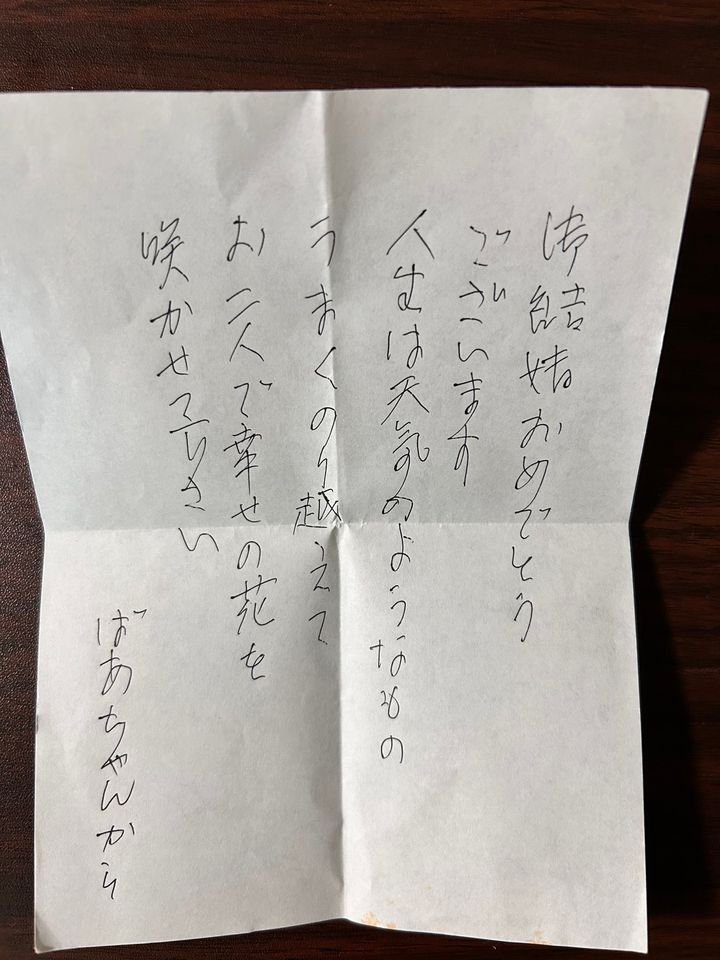 御結婚おめでとう
ございます
人生は天気のようなもの
うまくのり越えて
お二人で幸せの花を
咲かせて下さい
ばあちゃんから